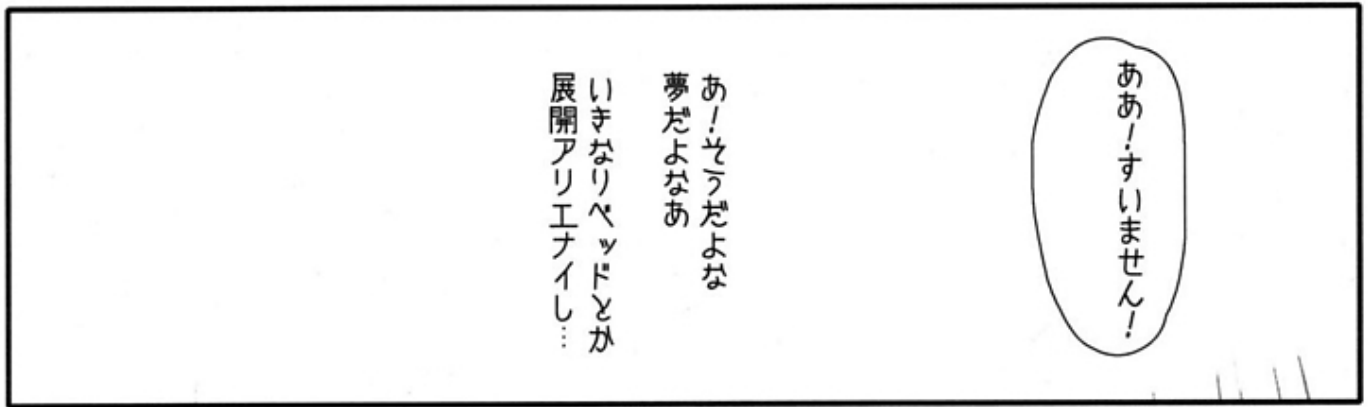 ああ！すいません！
あ！そうだよな
夢だよなあ
いきなりベッドとか
展開アリエナイし…